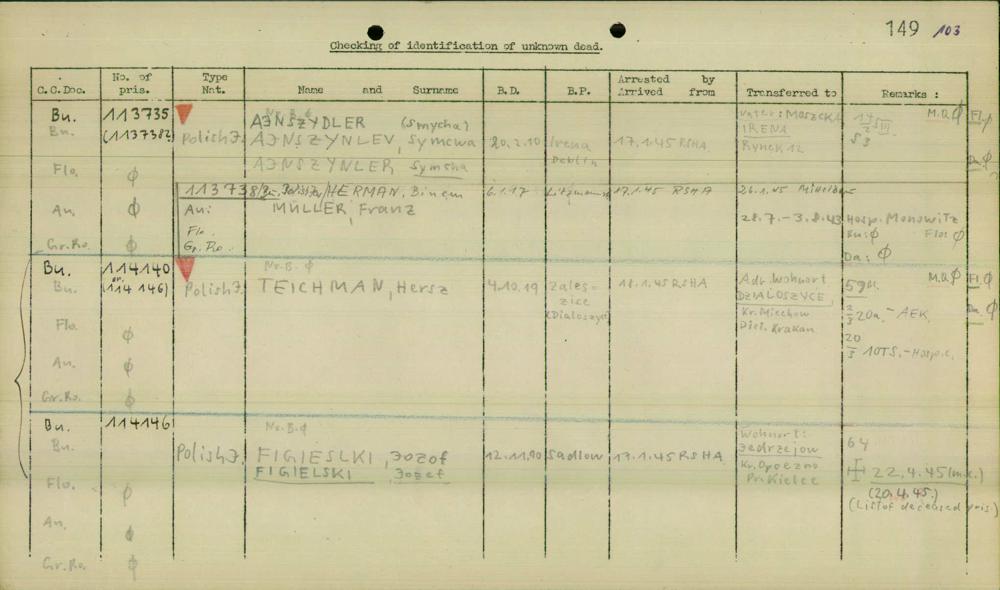 149 103
Checking of identification of unknown dead.
C.C.Doc. No. of pris. Type Nat. Name and Surname B.D. B.P. Arrested by Arrived from Transferred to Remarks :
Bu. 113735 Nr.B.φ M.D.φ Fl.
AJNSZYDLER (Smycha) Vater: Moszek
Bu. (113738?) Polish J. AJNSZYNLEV, Symcwa 20.2.10 Irena 17.1.45 RSHA IRENA 53
Deblin Rynek 12
Flo. φ AJNSZYNLER Symsha Da.φ
113738/Bu. Polish J. HERMAN, Binem 6.1.17 Litzmannst. 17.1.45 RSHA 26.1.45 Mittelbau
Au. φ Au: MÜLLER, Franz 28.7.-3.8.43 Hosp. Monowitz
Flo. Bu:φ Flo:φ
Gr.Ro. φ Gr.Ro. Da:φ
Bu. 114140 Nr.B.φ Adr. Wohnort M.D.φ Fl.φ
Bu. (114146) Polish J. TEICHMAN, Hersz 4.10.19 Zales= 18.1.45 RSHA DZIALOSZYCE, 59
zice Kr. Miechow Da.φ
Flo. φ (Dialoszyce) Dist. Krakau 2/3 20a. - AEK.
Au. φ 20/3 10TS.-Hosp.
Gr.Ro. φ
Bu. 114146 Nr.B.φ
Bu. Polish J. FIGIESLKI, Jozof 12.11.90 Sadlow 17.1.45 RSHA Wohnort: 64
Jedrzejow
FIGIELSKI, Jozef Kr. Opoczno 22.4.45
Flo. φ Pr. Kielce (20.4.45.)
(List of deceased pris.)
Au. φ
Gr.Ro. φ